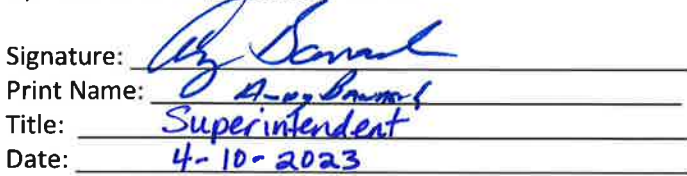 Signature:
Print Name:
Title: Superintendent
Date: 4-10-2023